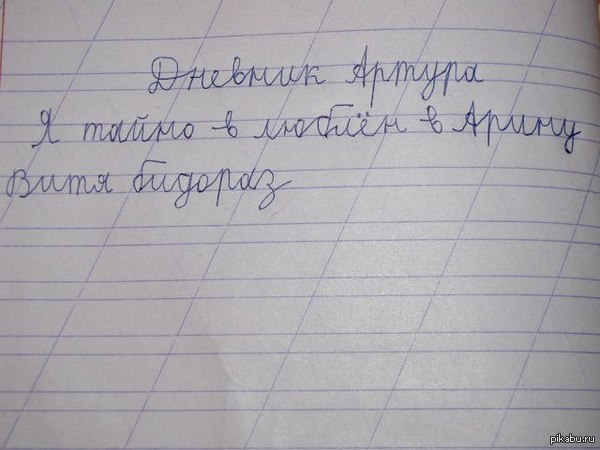 Дневник Артура
Я тайно в люблён в Арину
Витя бидораз
pikabu.ru